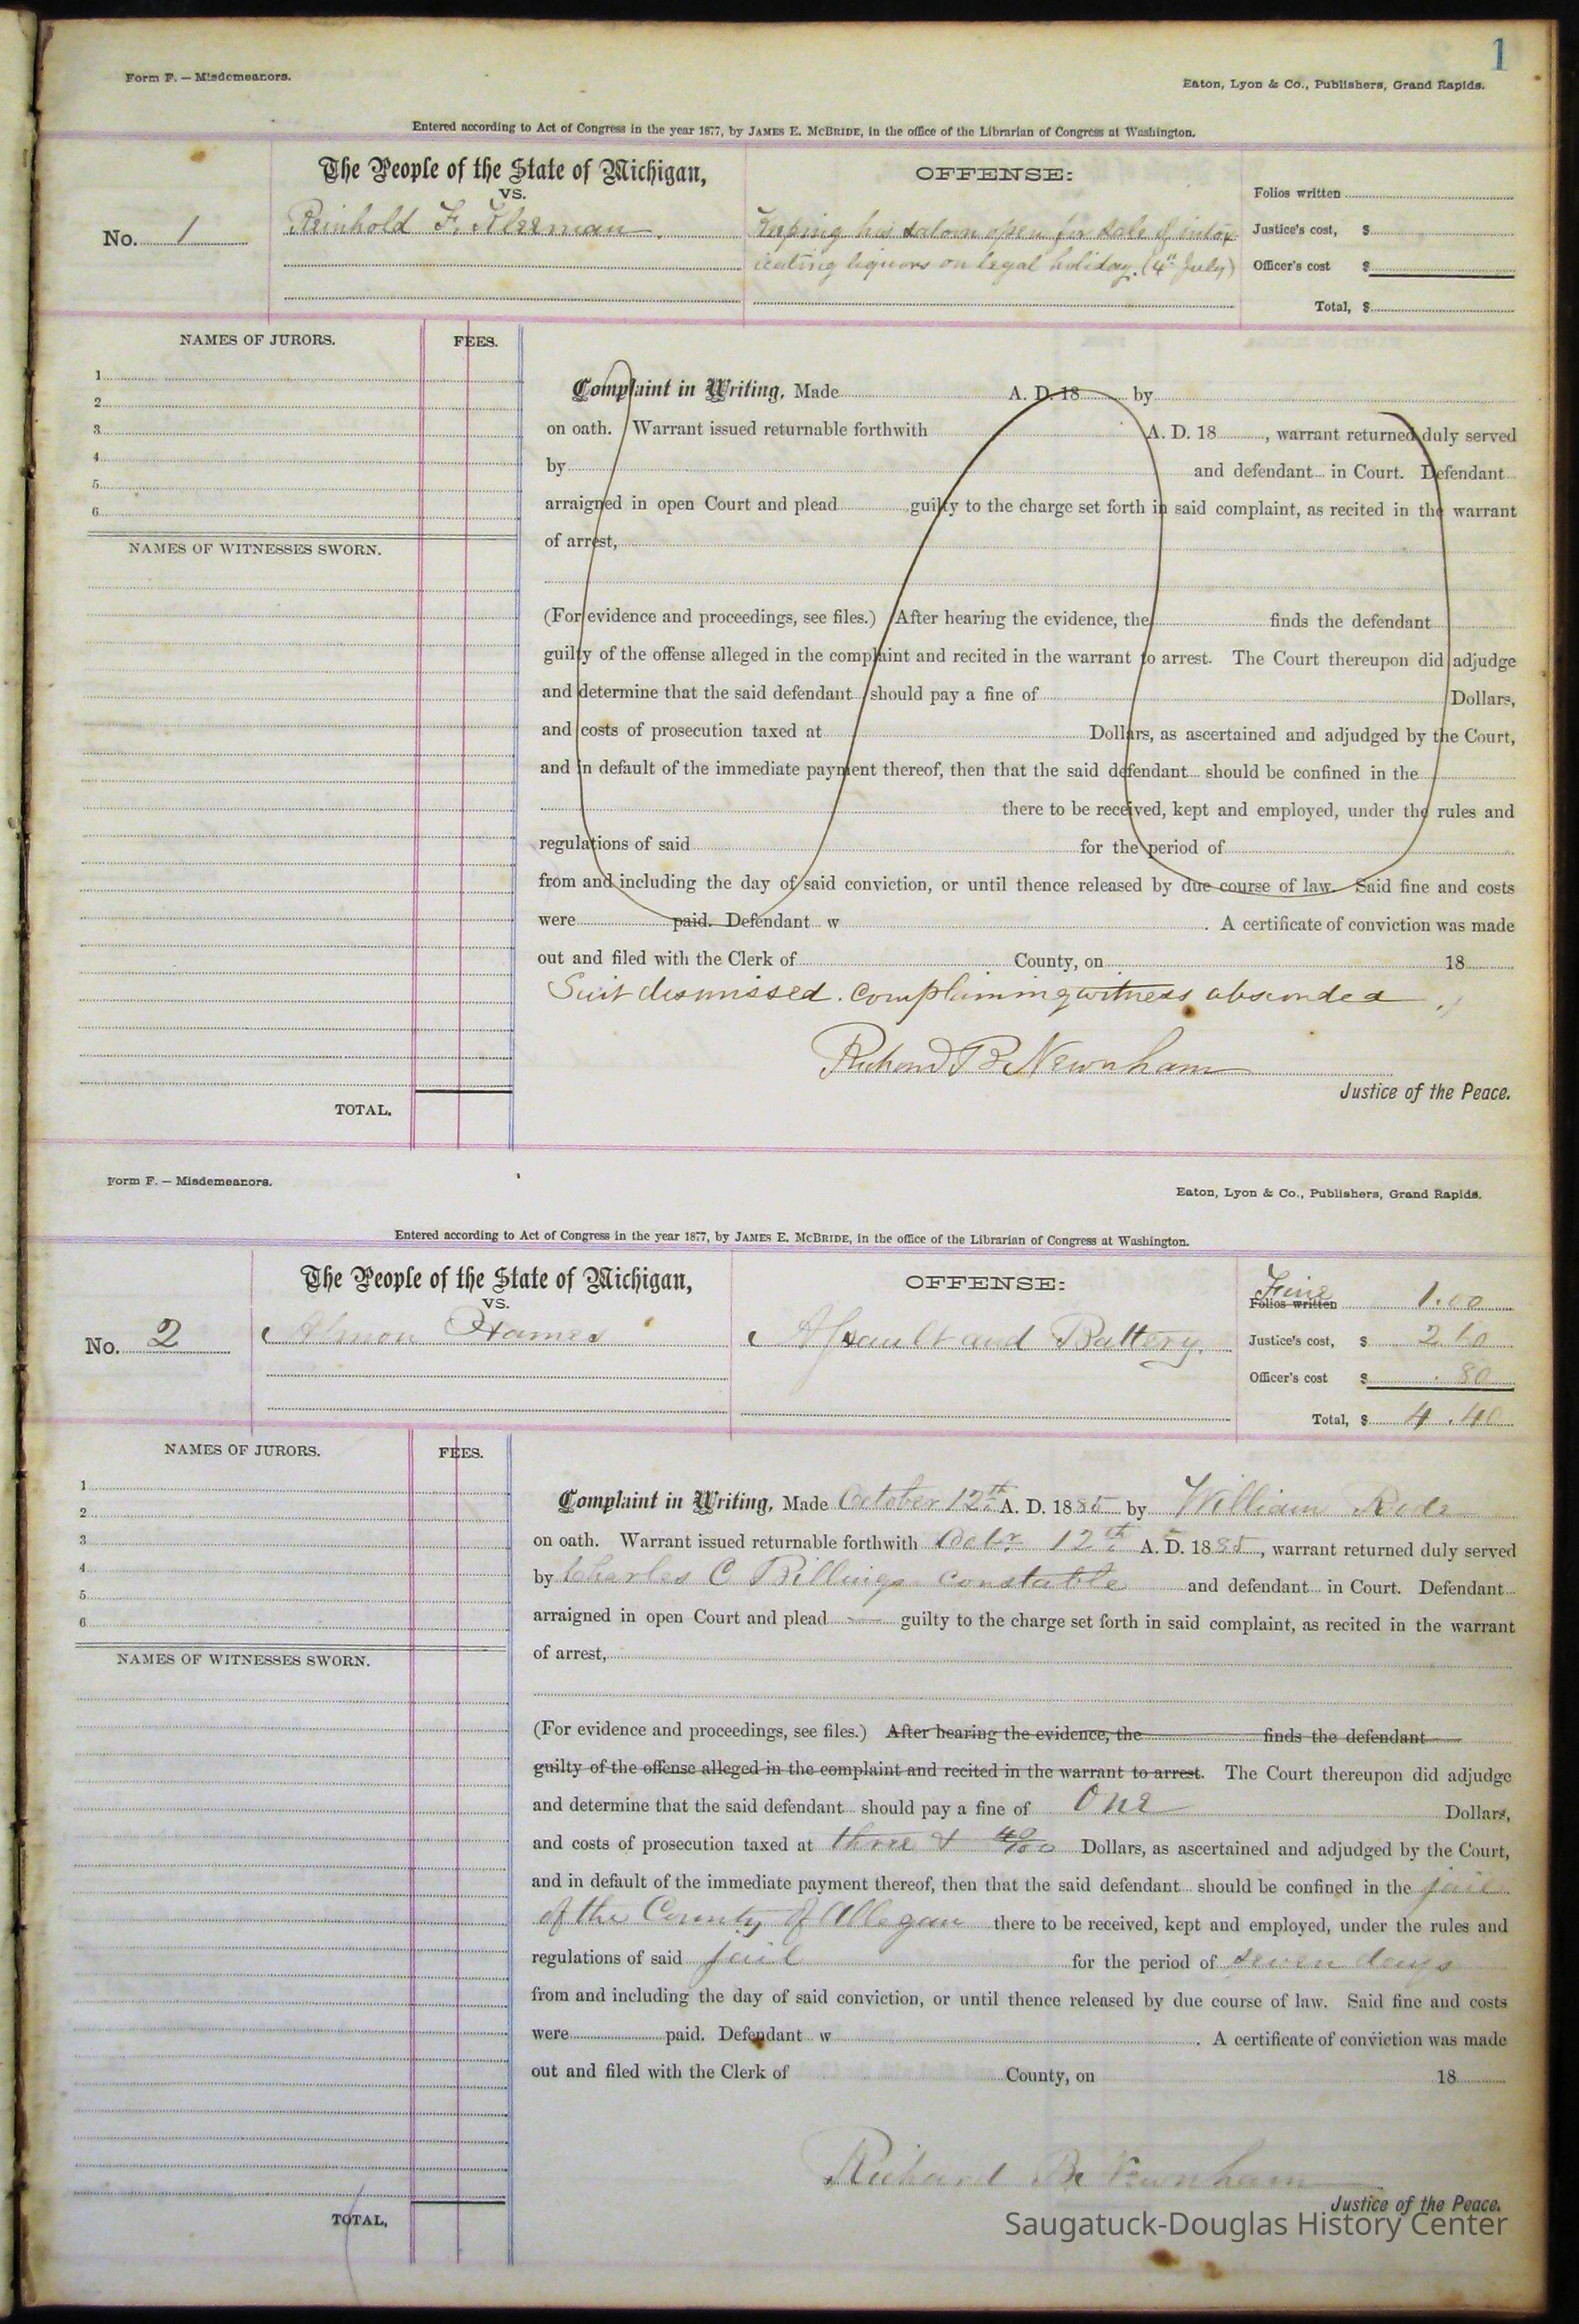 1
Form F. — Misdemeanors.
Eaton, Lyon & Co., Publishers, Grand Rapids.
Entered according to Act of Congress in the year 1877, by JAMES E. McBRIDE, in the office of the Librarian of Congress at Washington.
The People of the State of Michigan,
vs.
No. 1
Reinhold F.
OFFENSE:
Keeping his saloon open for sale of intox-
icating liquors on legal holiday. (4th July)
Folios written
Justice's cost, $
Officer's cost $
Total, $
NAMES OF JURORS.
FEES.
1
2
3
4
5
6
NAMES OF WITNESSES SWORN.
TOTAL.
Complaint in Writing, Made A. D. 18 by
on oath. Warrant issued returnable forthwith A. D. 18 , warrant returned duly served
by and defendant in Court. Defendant
arraigned in open Court and plead guilty to the charge set forth in said complaint, as recited in the warrant
of arrest,
(For evidence and proceedings, see files.) After hearing the evidence, the finds the defendant
guilty of the offense alleged in the complaint and recited in the warrant to arrest. The Court thereupon did adjudge
and determine that the said defendant should pay a fine of Dollars,
and costs of prosecution taxed at Dollars, as ascertained and adjudged by the Court,
and in default of the immediate payment thereof, then that the said defendant should be confined in the
there to be received, kept and employed, under the rules and
regulations of said for the period of
from and including the day of said conviction, or until thence released by due course of law. Said fine and costs
were paid. Defendant w . A certificate of conviction was made
out and filed with the Clerk of County, on 18
Suit dismissed. Complaining witness absconded
Richard B. Newnham
Justice of the Peace.
Form F. — Misdemeanors.
Eaton, Lyon & Co., Publishers, Grand Rapids.
Entered according to Act of Congress in the year 1877, by JAMES E. McBRIDE, in the office of the Librarian of Congress at Washington.
The People of the State of Michigan,
vs.
No. 2
Almon Hames
OFFENSE:
Assault and Battery.
Fine
Folios written 1.00
Justice's cost, $ 2.60
Officer's cost $ .80
Total, $ 4.40
NAMES OF JURORS.
FEES.
1
2
3
4
5
6
NAMES OF WITNESSES SWORN.
TOTAL,
Complaint in Writing, Made October 12th A. D. 1885 by William
on oath. Warrant issued returnable forthwith Octbr 12th A. D. 1885, warrant returned duly served
by Charles C Billings constable and defendant in Court. Defendant
arraigned in open Court and plead guilty to the charge set forth in said complaint, as recited in the warrant
of arrest,
(For evidence and proceedings, see files.) After hearing the evidence, the finds the defendant
guilty of the offense alleged in the complaint and recited in the warrant to arrest. The Court thereupon did adjudge
and determine that the said defendant should pay a fine of One Dollars,
and costs of prosecution taxed at three & 40/100 Dollars, as ascertained and adjudged by the Court,
and in default of the immediate payment thereof, then that the said defendant should be confined in the jail
of the County of Allegan there to be received, kept and employed, under the rules and
regulations of said jail for the period of seven days
from and including the day of said conviction, or until thence released by due course of law. Said fine and costs
were paid. Defendant w . A certificate of conviction was made
out and filed with the Clerk of County, on 18
Richard B Newnham
Justice of the Peace.
Saugatuck-Douglas History Center